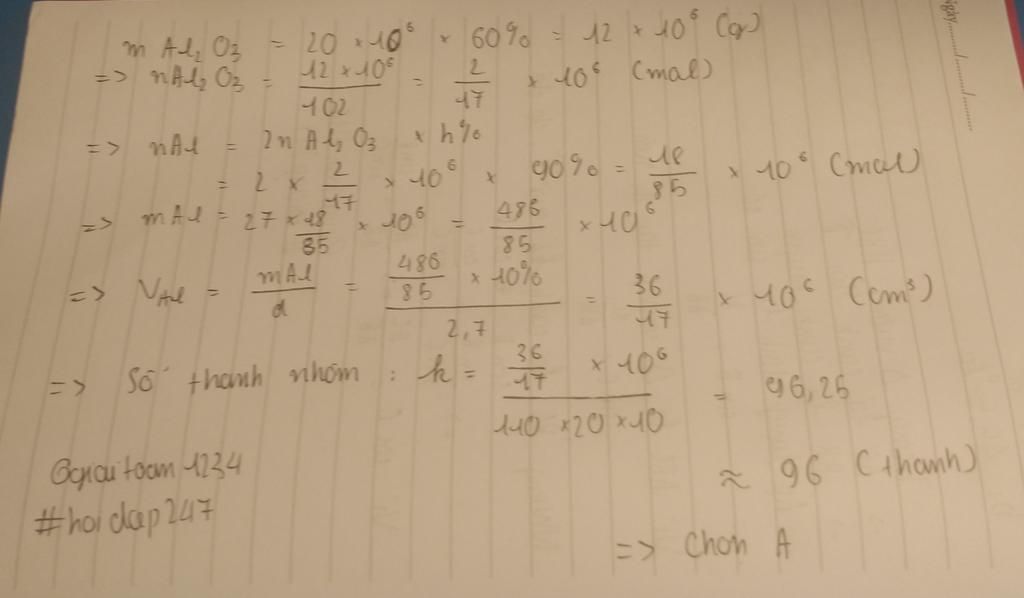 m Al₂O₃ = 20 × 10⁶ × 60% = 12 × 10⁶ (g)
=> nAl₂O₃ = 12 × 10⁶ / 102 = 2/17 × 10⁶ (mol)
=> nAl = 2n Al₂O₃ × h%
= 2 × 2/17 × 10⁶ × 90% = 18/85 × 10⁶ (mol)
=> mAl = 27 × 18/85 × 10⁶ = 486/85 × 10⁶
=> VAl = mAl/d = 486/85 × 10% / 2,7 = 36/17 × 10⁶ (cm³)
=> Số thanh nhôm : k = 36/17 × 10⁶ / 110 × 20 × 10 = 96,25
≈ 96 (thanh)
@giaitoan1234
#hoidap247
=> Chọn A